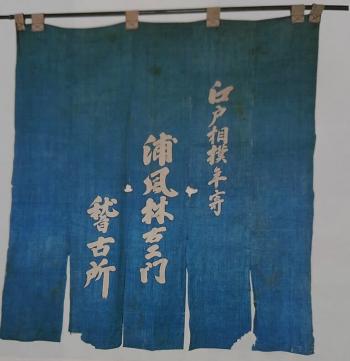 江戸相撲年寄
浦風林右エ門
稽古所